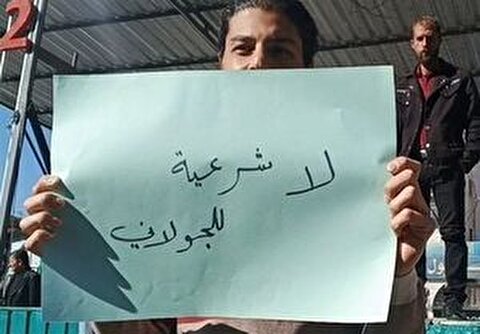 2
لا شرعية
للجولاني